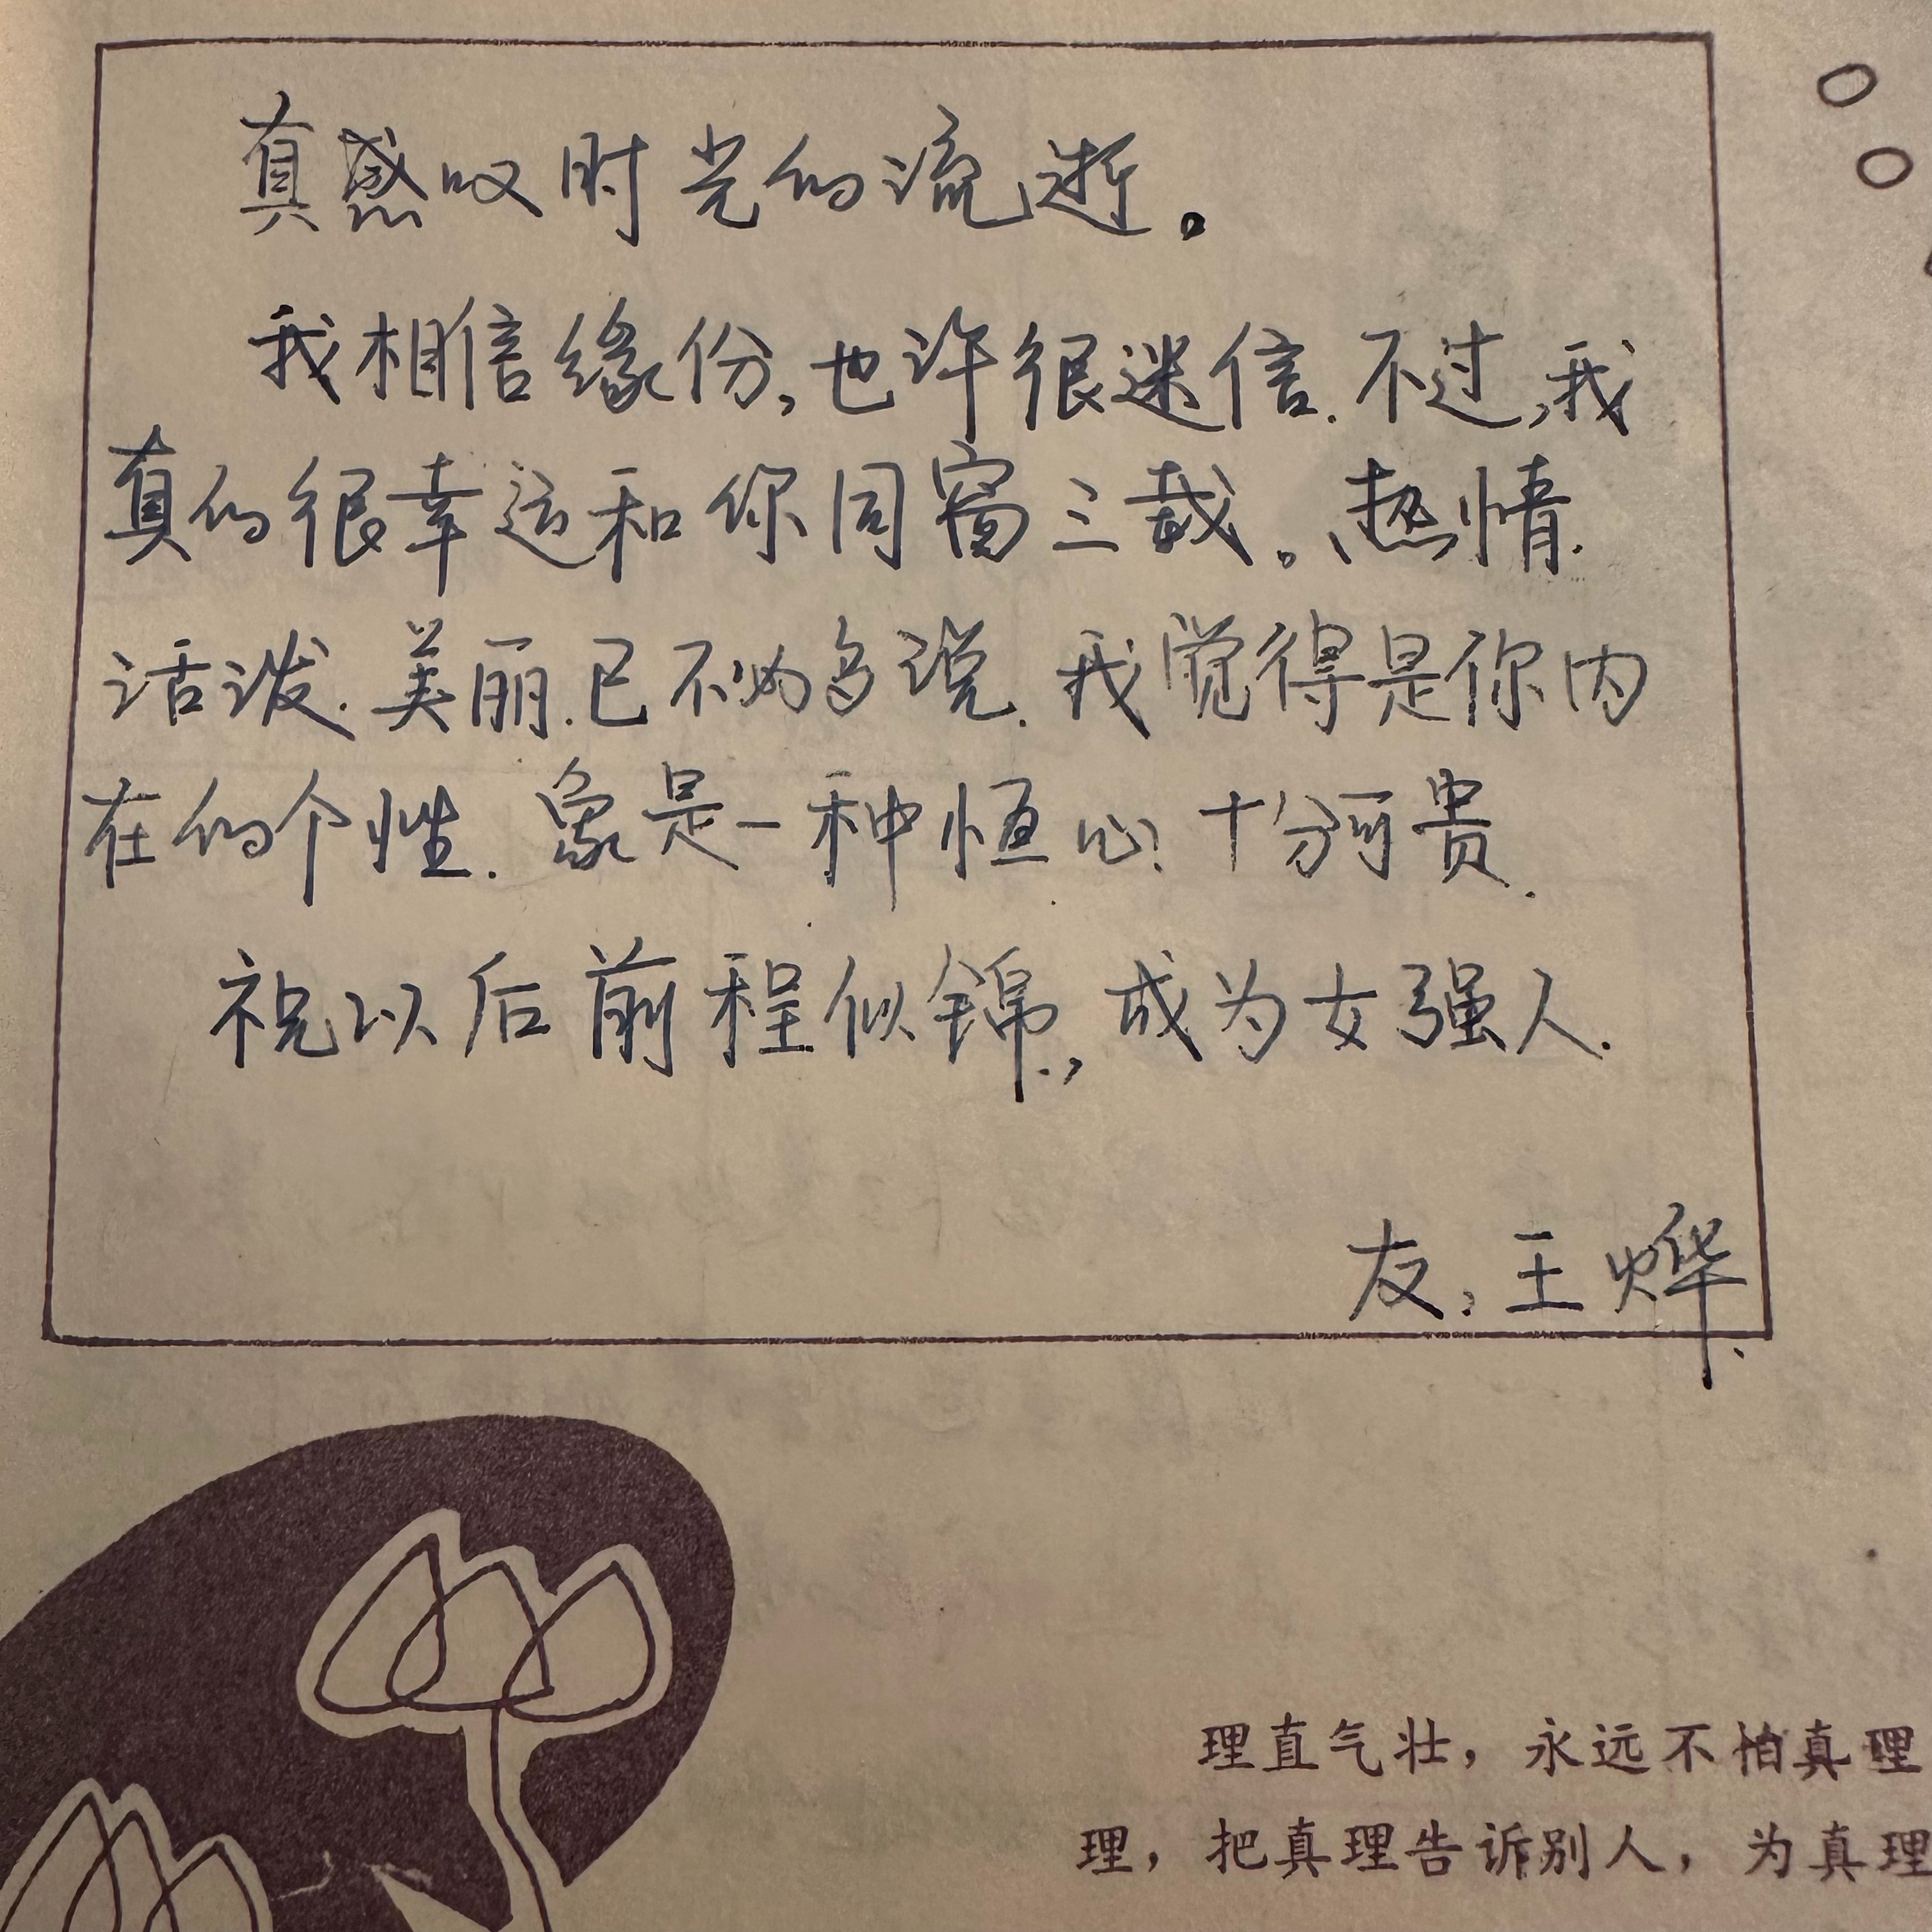 真感叹时光的流逝。
我相信缘份,也许很迷信.不过,我
真的很幸运和你同窗三载。热情.
活泼.美丽.已不必多说.我觉得是你内
在的个性.象是一种恒心.十分可贵.
祝以后前程似锦,成为女强人.
友,王烨.
理直气壮，永远不怕真理
理，把真理告诉别人，为真理